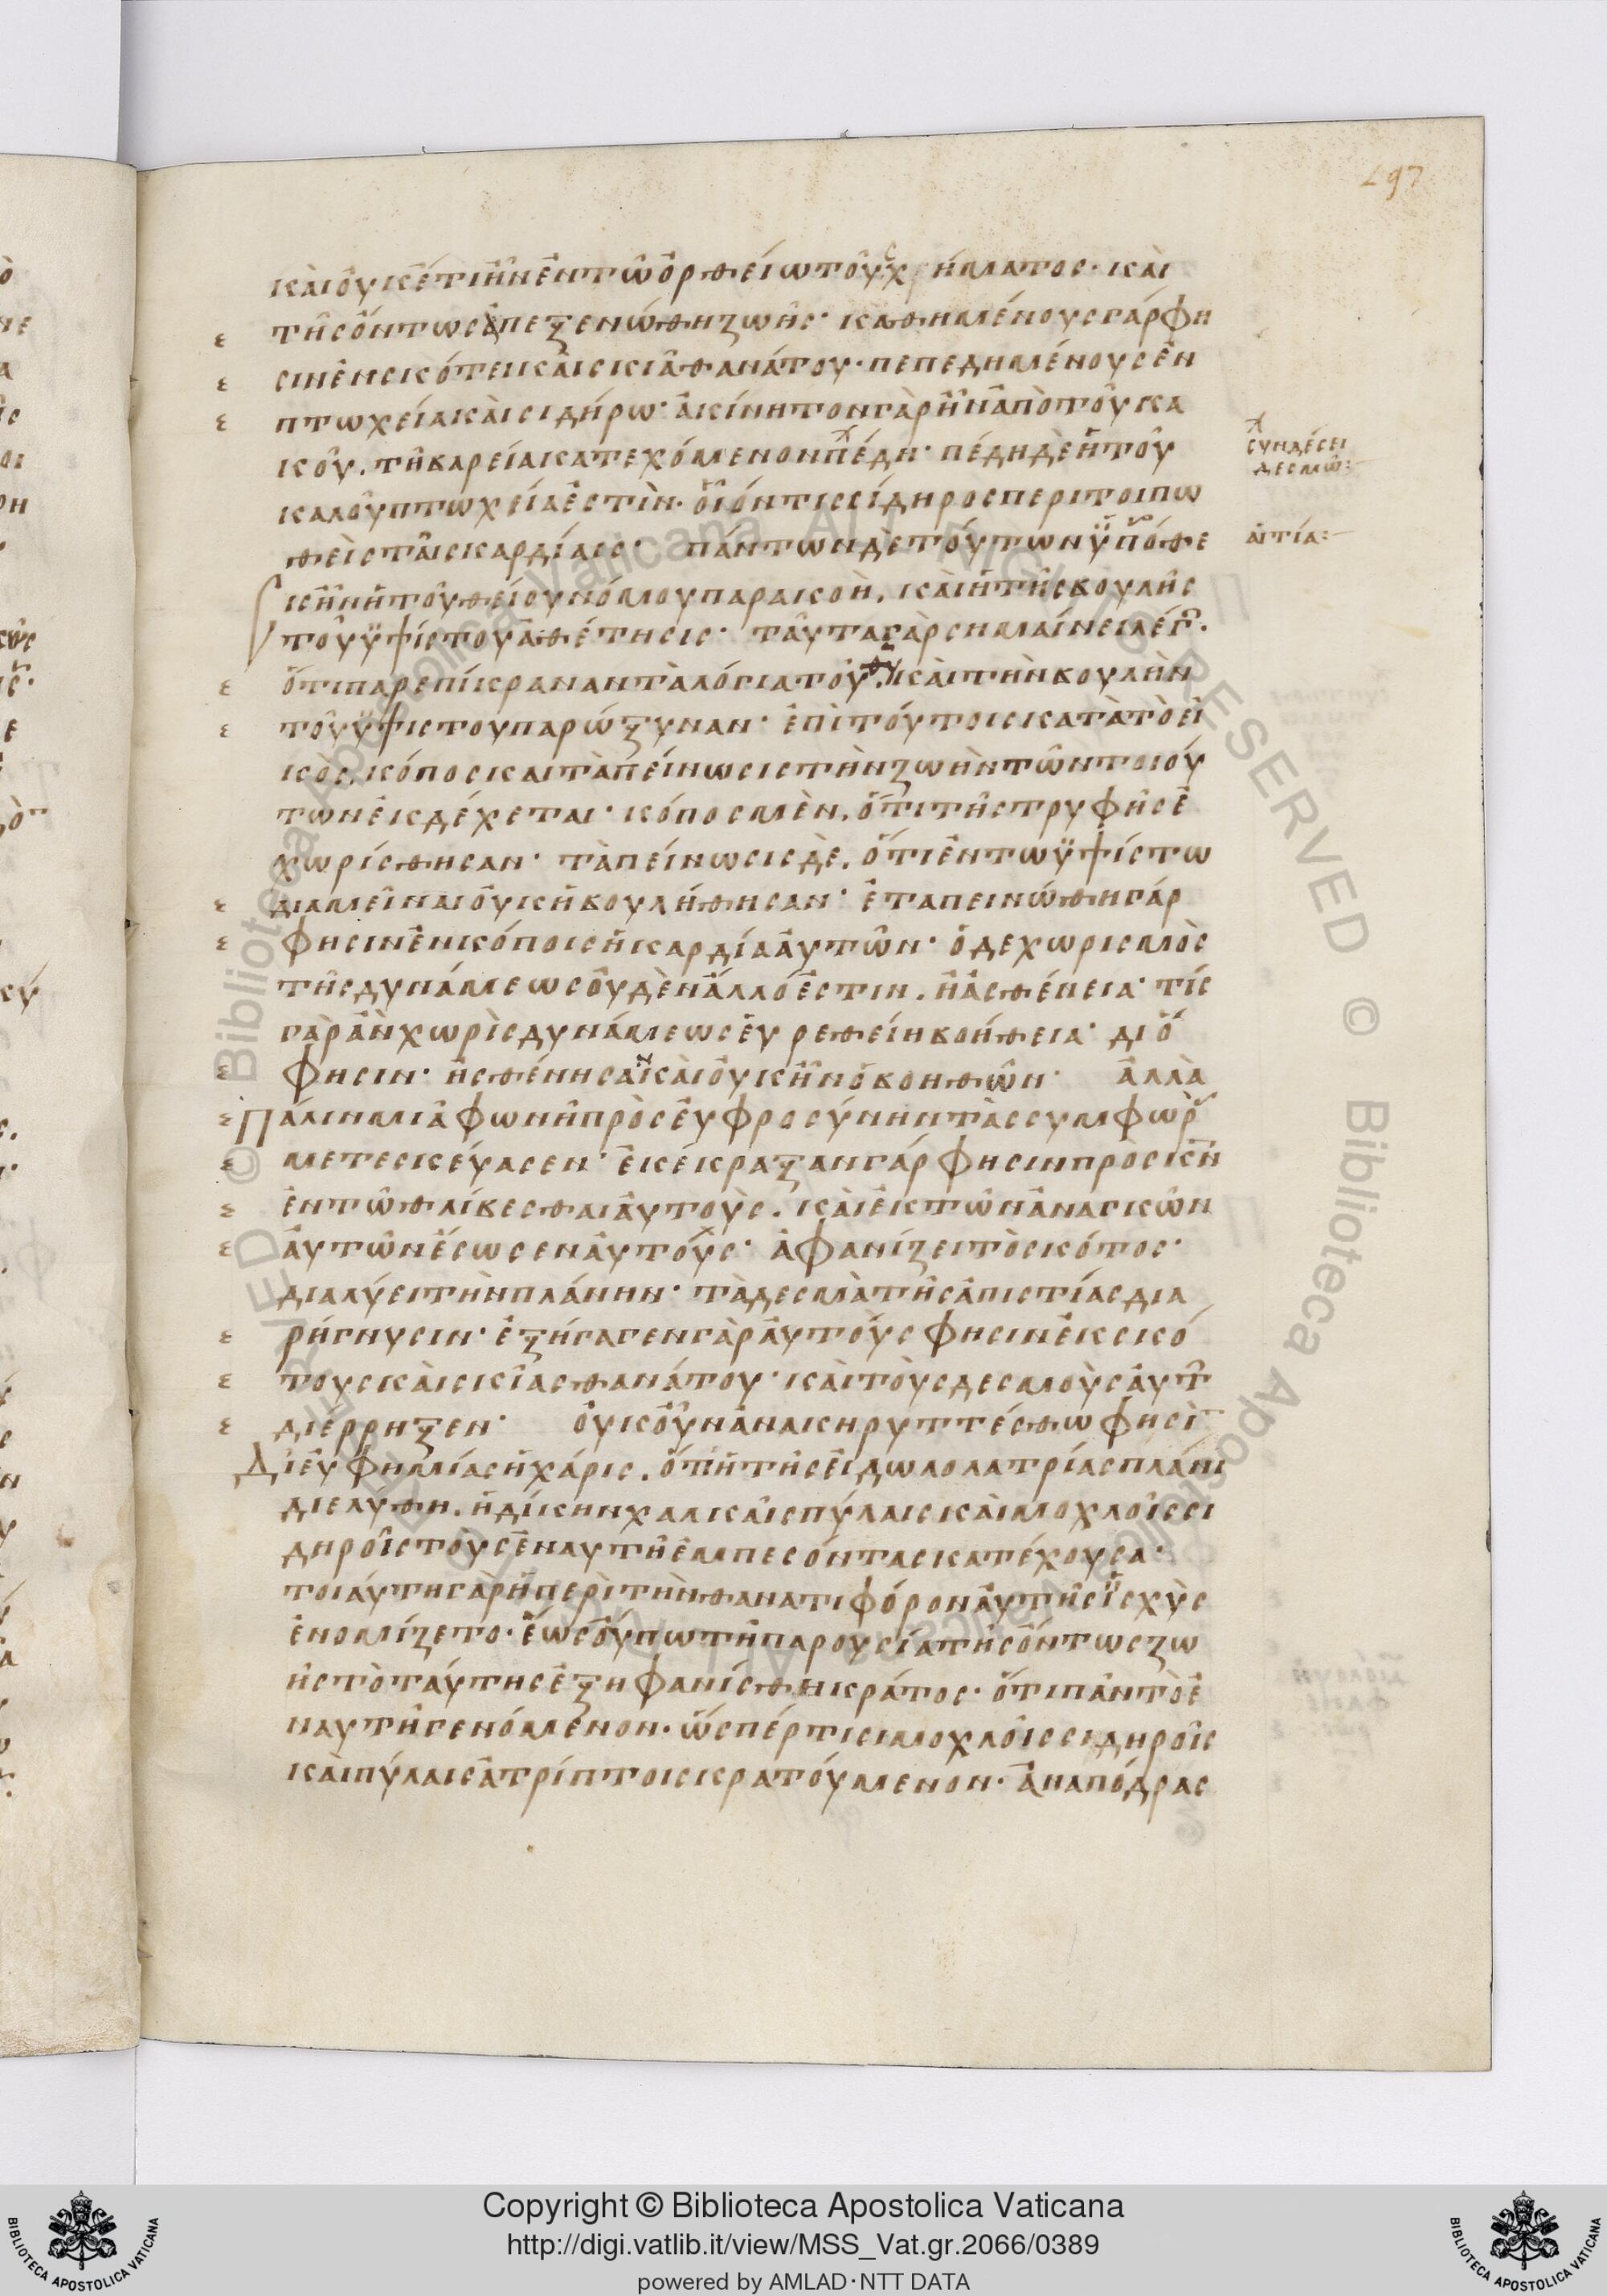 497
καὶ οὐκέτι ἦν ἐν τῷ ὀρθείω τοῦ σχήματος· καὶ
τῆς ὄντως ἀπεξενώθη ζωῆς· καθημένους γάρ φη
σιν ἐν σκότει καὶ σκιᾷ θανάτου· πεπεδημένους ἐν
πτωχεία καὶ σιδήρω· ἀκίνητον γὰρ ἦν ἀπὸ τοῦ κα
κοῦ. τῆ βαρεία κατεχόμενον πέδη· πέδη δὲ ἡ τοῦ
καλοῦ πτωχεία ἐστὶν. οἷόν τις σίδηρος περιτοιπω
θεὶς ταῖς καρδίαις· πάντων δὲ τούτων ϋπόθε
συνδέσει
δεσμῶ:
αἰτία:
κην ἡ τοῦ θείου νόμου παρακοὴ. καὶ ἡ τῆς βουλῆς
τοῦ ϋψίστου ἀθέτησις· ταῦτα γὰρ σημαίνει λέγ.
ὅτι παρεπίκραναν τὰ λόγια τοῦ θυ. καὶ τὴν βουλὴν
τοῦ ϋψιστου παρώξυναν· ἐπὶ τούτοις κατὰ τὸ εἰ
κος, κόπος και ταπείνωσις τὴν ζωὴν τῶν τοιού
των ἐκδέχεται· κόπος μὲν. ὅτι τῆς τρυφῆς ἐ
χωρίσθησαν· ταπείνωσις δε. ὅτι ἐν τω ϋψίστω
διαμεῖναι οὐκ ἠβουλήθησαν· ἐταπεινώθη γάρ
φησιν ἐν κόποις ἡ καρδία αὐτῶν· ὁ δε χωρισμὸς
τῆς δυνάμεως οὐδὲν ἄλλό ἐστιν. ἢ ἀσθένεια· τίς
γὰρ ἂν χωρὶς δυνάμεως εὑρεθείη βοήθεια· διό
φησιν· ἠσθένησαν καὶ οὐκ ἦν ὁ βοηθῶν· ἀλλὰ
Πάλιν μιᾷ φωνῆ πρὸς εὐφροσύνην τὰς συμφωρ
μετεσκεύασεν· ἐκέκραξαν γάρ φησιν πρὸς κν
ἐν τῶ θλίβεσθαι αὐτοὺς. καὶ ἐκ τῶν ἀναγκῶν
αὐτῶν ἔσωσεν αὐτούς· ἀφανίζει τὸ σκότος·
διαλύει τὴν πλάνην· τὰ δεσμὰ τῆς ἀπιστίας δια
ρήγνυσιν· ἐξήγαγεν γὰρ αὐτοὺς φησιν ἐκ σκό
τους καὶ σκιᾶς θανάτου· καὶ τοὺς δεσμοὺς αὐτ
διέρρηξεν· οὐκοῦν ἀνακηρυττέσθω φησὶ
Δι εὐφημίας ἡ χάρις. ὅτι ἡ τῆς εἰδωλολατρίας πλάνη
διελύθη. ἡ δίκην χαλκαῖς πύλαις καὶ μοχλοῖς σι
δηροῖς τοὺς ἐν αυτῆ ἐμπεσόντας κατέχουσα·
τοιαύτη γὰρ ἡ περὶ τὴν θανατιφόρον αὐτῆς ἰσχὺς
ἐνομίζετο· ἕως οὔπω τῆ παρουσία τῆς ὄντως ζω
ῆς τὸ ταύτης ἐξηφανίσθη κράτος· ὅτι πᾶν τὸ ἐ
ν αυτῆ γενόμενον· ὥσπέρ τισι μοχλοῖς σιδηροῖς
καὶ πύλαις ἀτρίπτοις κρατούμενον· ἀναπόδρας
Copyright © Biblioteca Apostolica Vaticana
http://digi.vatlib.it/view/MSS_Vat.gr.2066/0389
powered by AMLAD·NTT DATA